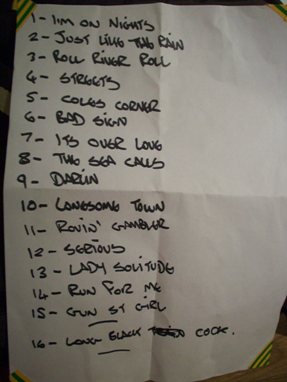 1- I'M ON NIGHTS
2- JUST LIKE THE RAIN
3- ROLL RIVER ROLL
4- STREETS
5- COLES CORNER
6- BAD SIGN
7- ITS OVER LOVE
8- THE SEA CALLS
9- DARLIN
10- LONESOME TOWN
11- ROVIN' GAMBLER
12- SERIOUS
13- LADY SOLITUDE
14- RUN FOR ME
15- GUN ST GIRL
16- LONG BLACK COCK.